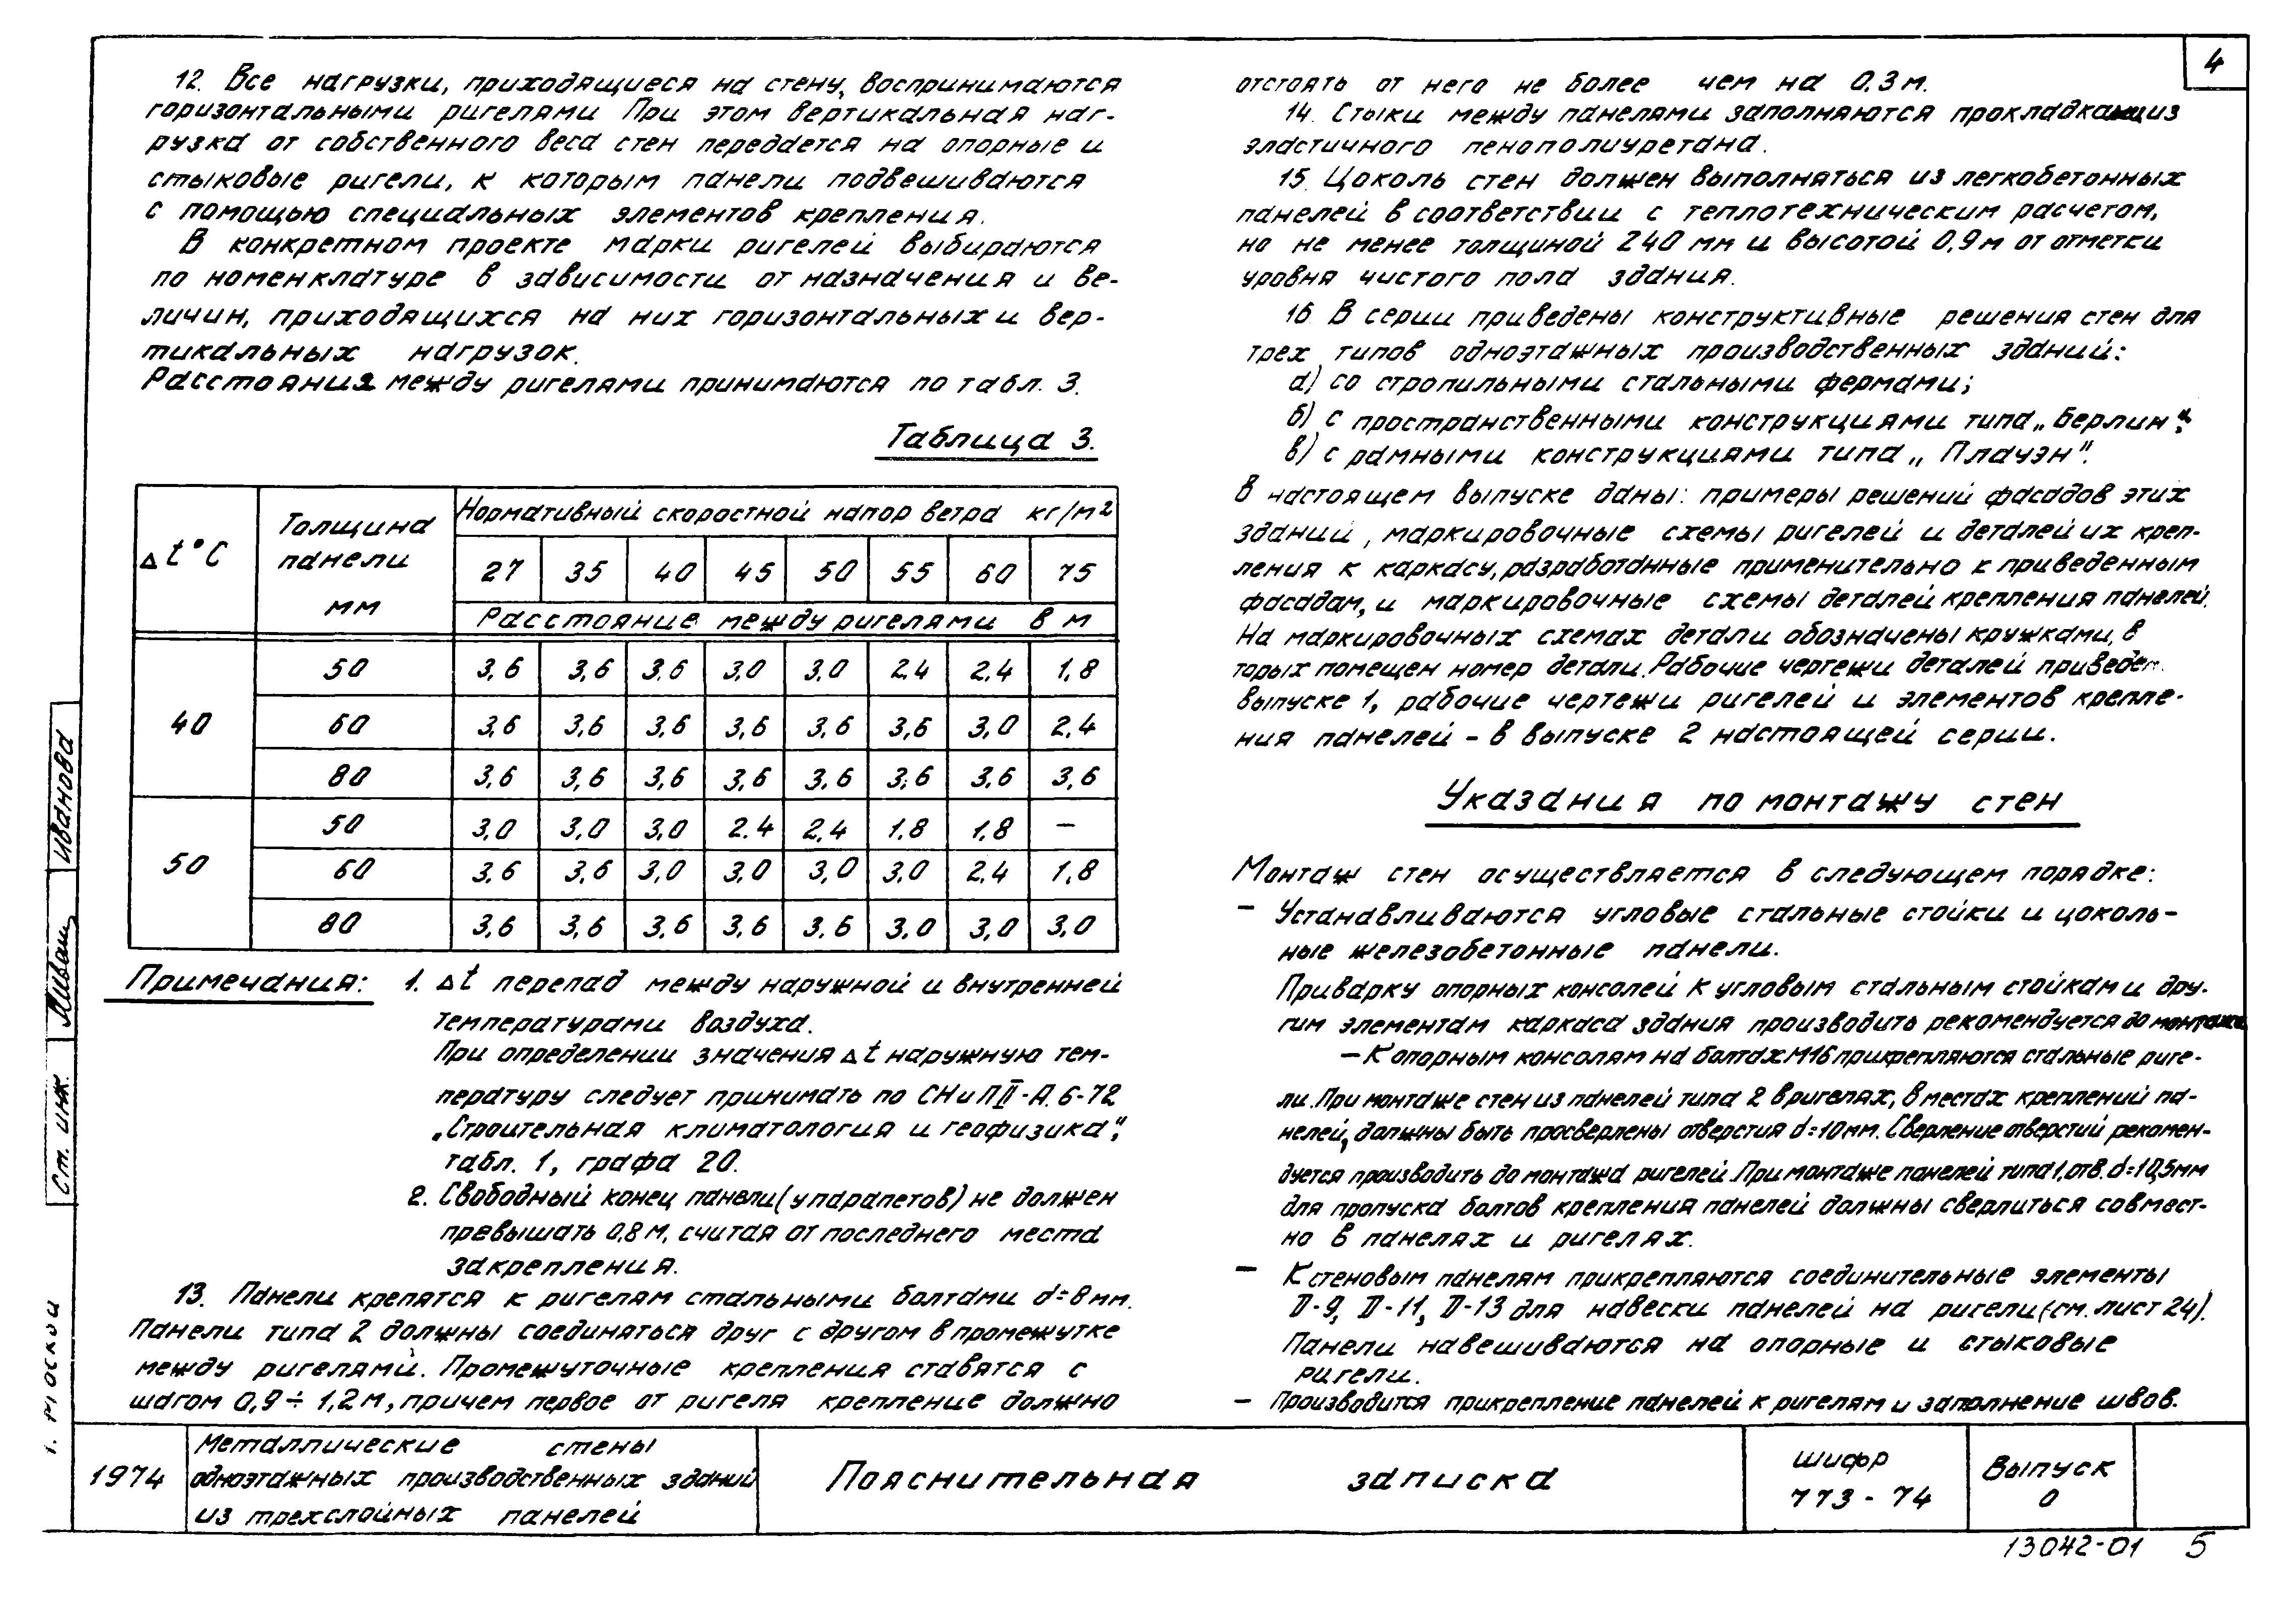 4
12. Все нагрузки, приходящиеся на стену, воспринимаются
горизонтальными ригелями При этом вертикальная наг-
рузка от собственного веса стен передается на опорные и
стыковые ригели, к которым панели подвешиваются
с помощью специальных элементов крепления.
В конкретном проекте марки ригелей выбираются
по номенклатуре в зависимости от назначения и ве-
личин, приходящихся на них горизонтальных и вер-
тикальных нагрузок.
Расстояния между ригелями принимаются по табл. 3.
Таблица 3.
Δt°C Толщина панели мм Нормативный скоростной напор ветра кг/м2
27 35 40 45 50 55 60 75
Расстояние между ригелями в м
40 50 3,6 3,6 3,6 3,0 3,0 2.4 2.4 1,8
60 3,6 3,6 3,6 3,6 3,6 3,6 3,0 2.4
80 3,6 3,6 3,6 3,6 3,6 3,6 3,6 3,6
50 50 3,0 3,0 3,0 2.4 2,4 1.8 1,8 —
60 3,6 3,6 3,0 3,0 3,0 3,0 2.4 1,8
80 3,6 3,6 3,6 3,6 3,6 3,0 3,0 3,0
Примечания: 1. Δt перепад между наружной и внутренней
температурами воздуха.
При определении значения Δt наружную тем-
пературу следует принимать по СНиП II-А. 6-72
„Строительная климатология и геофизика",
табл. 1, графа 20.
2. Свободный конец панели (у парапетов) не должен
превышать 0,8 м, считая от последнего места
закрепления.
13. Панели крепятся к ригелям стальными болтами d=8мм.
Панели типа 2 должны соединяться друг с другом в промежутке
между ригелями. Промежуточные крепления ставятся с
шагом 0,9 ÷ 1,2 м, причем первое от ригеля крепление должно
отстоять от него не более чем на 0.3 м.
14. Стыки между панелями заполняются прокладками из
эластичного пенополиуретана.
15. Цоколь стен должен выполняться из легкобетонных
панелей в соответствии с теплотехническим расчетом,
но не менее толщиной 240 мм и высотой 0,9 м от отметки
уровня чистого пола здания.
16 В серии приведены конструктивные решения стен для
трех типов одноэтажных производственных зданий:
а) со стропильными стальными фермами;
б) с пространственными конструкциями типа „Берлин";
в) с рамными конструкциями типа „Плауэн".
В настоящем выпуске даны: примеры решений фасадов этих
зданий, маркировочные схемы ригелей и деталей их креп-
ления к каркасу, разработанные применительно к приведенным
фасадам, и маркировочные схемы деталей крепления панелей.
На маркировочных схемах детали обозначены кружками, в
торых помещен номер детали. Рабочие чертежи деталей приведен
выпуске 1, рабочие чертежи ригелей и элементов крепле-
ния панелей - в выпуске 2 настоящей серии.
Указания по монтажу стен
Монтаж стен осуществляется в следующем порядке:
- Устанавливаются угловые стальные стойки и цоколь-
ные железобетонные панели.
Приварку опорных консолей к угловым стальным стойкам и дру-
гим элементам каркаса здания производить рекомендуется до монтажа
- К опорным консолям на болтах М16 прикрепляются стальные риге-
ли. При монтаже стен из панелей типа 2 в ригелях, в местах креплений па-
нелей, должны быть просверлены отверстия d=10мм. Сверление отверстий рекомен-
дуется производить до монтажа ригелей. При монтаже панелей типа 1, отв. d=10,5мм
для пропуска болтов крепления панелей должны сверлиться совмест-
но в панелях и ригелях.
- К стеновым панелям прикрепляются соединительные элементы
Д-9, Д-11, Д-13 для навески панелей на ригели (см. лист 24).
Панели навешиваются на опорные и стыковые
ригели.
- Производится прикрепление панелей к ригелям и заполнение швов.
Ст. инж. Иванова
г. Москва
1974
Металлические стены
одноэтажных производственных зданий
из трехслойных панелей
Пояснительная записка
шифр
773 - 74
Выпуск
0
13042-01 5